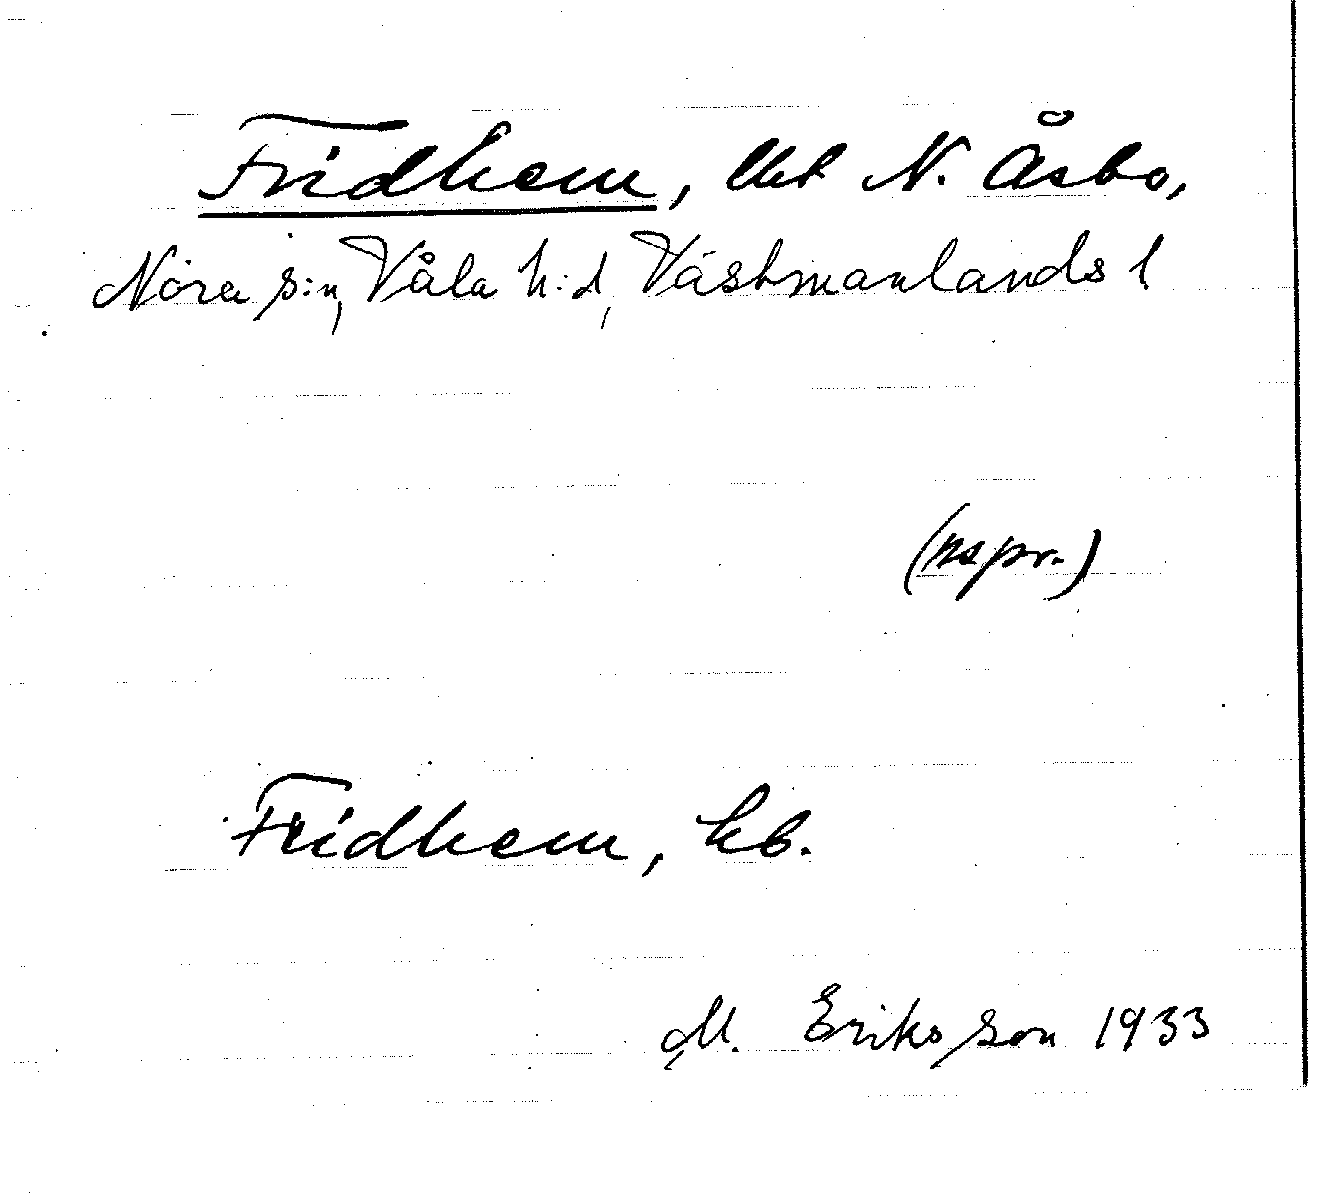 Fridhem, lht N. Åsbo,
Nora s:n, Våla h:d, Västmanlands l.
(nspr.)
Fridhem, kb.
M. Eriksson 1933